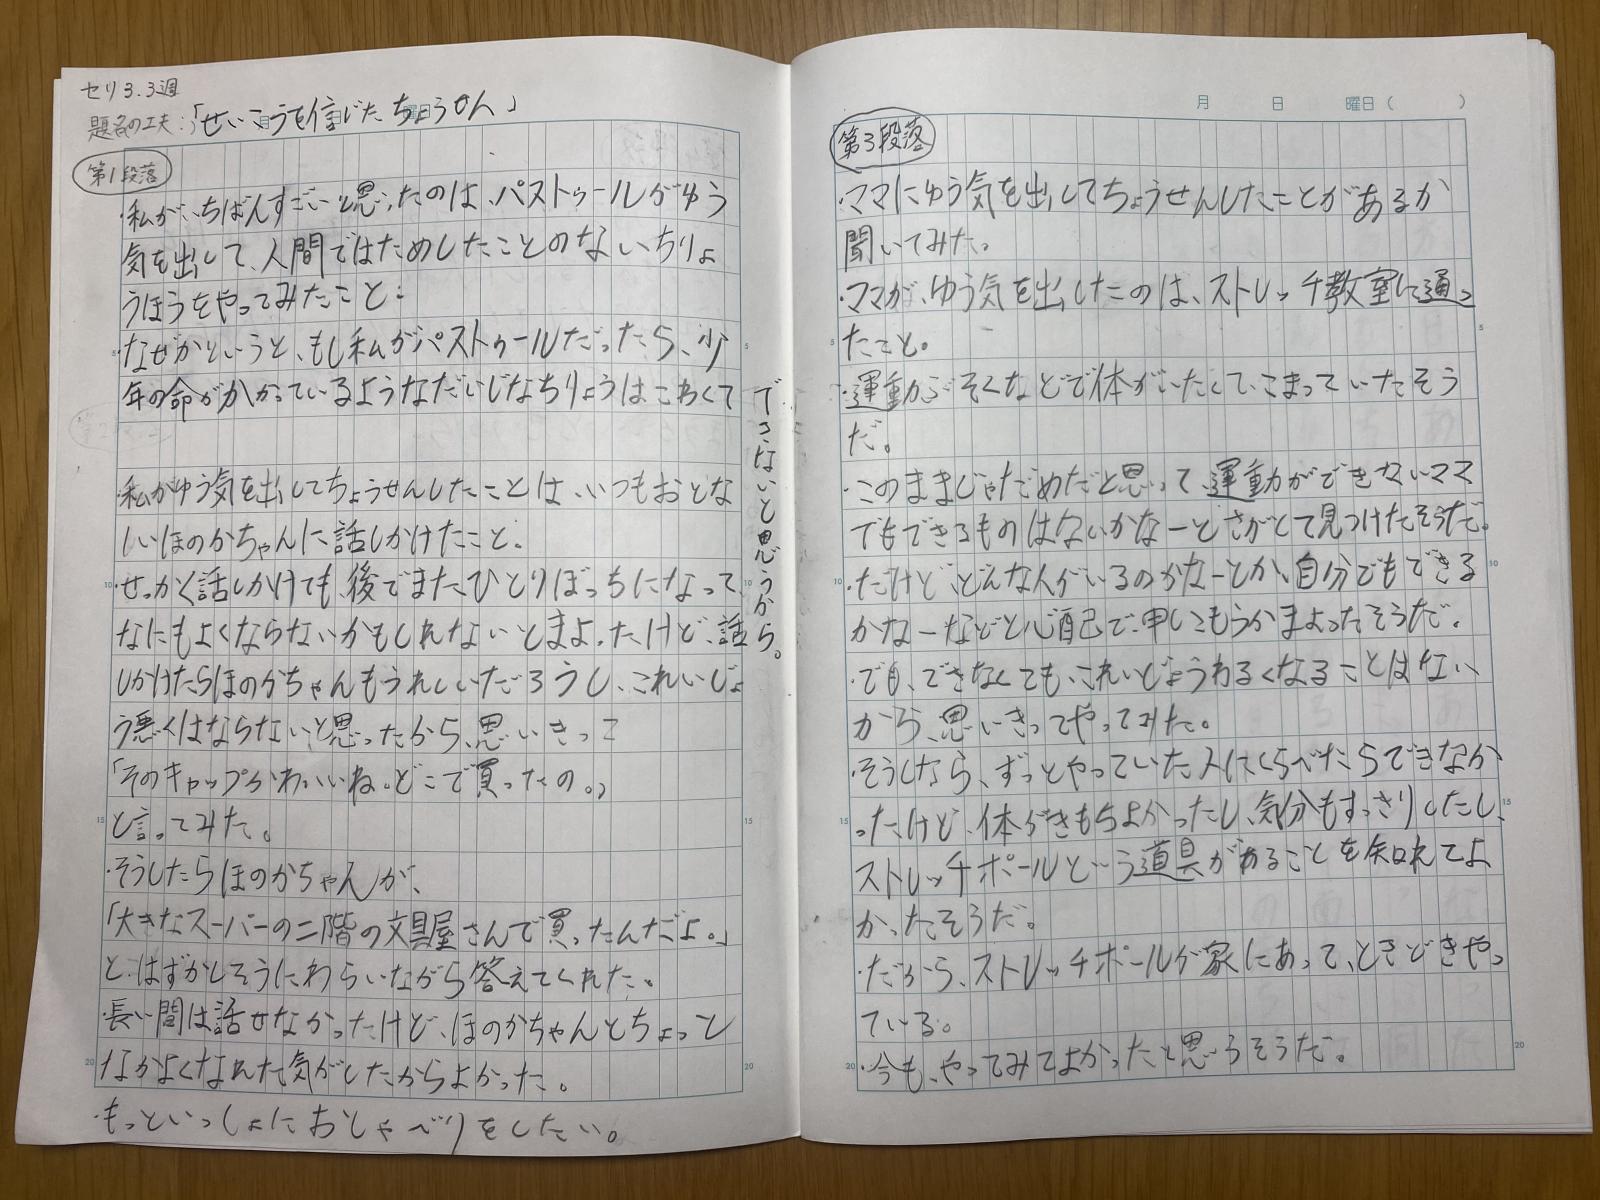 セリ3.3週
題名の工夫:「せいこうを信じたちょうせん」
月 日 曜日
第1段落
・私がいちばんすごいと思ったのは、パストゥールがゆう
気を出して、人間ではためしたことのないちりょ
うほうをやってみたこと。
・なぜかというと、もし私がパストゥールだったら、少
年の命がかかっているようなだいじなちりょうはこわくて
できないと思うから。
・私がゆう気を出してちょうせんしたことは、いつもおとな
しいほのかちゃんに話しかけたこと。
・せっかく話しかけても、後でまたひとりぼっちになって、
なにもよくならないかもしれないとまよったけど、話
しかけたらほのかちゃんもうれしいだろうし、これいじょ
う悪くはならないと思ったから、思いきって
「そのキャップかわいいね。どこで買ったの。」
と言ってみた。
・そうしたらほのかちゃんが、
「大きなスーパーの二階の文具屋さんで買ったんだよ。」
と、はずかしそうにわらいながら答えてくれた。
・長い間は話せなかったけど、ほのかちゃんとちょっと
なかよくなれた気がしたからよかった。
・もっといっしょにおしゃべりをしたい。
月 日 曜日( )
第3段落
・ママにゆう気を出してちょうせんしたことがあるか
聞いてみた。
・ママが、ゆう気を出したのは、ストレッチ教室に通っ
たこと。
・運動ぶそくなどで体がいたくて、こまっていたそう
だ。
・このままじゃだめだと思って、運動ができないママ
でもできるものはないかなーとさがして見つけたそうだ。
・だけど、どんな人がいるのかなーとか、自分でもできる
かなーなどと心配で、申しこもうかまよったそうだ。
・でも、できなくても、これいじょうわるくなることはない
から、思いきってやってみた。
・そうしたら、ずっとやっていた人にくらべたらできなか
ったけど、体がきもちよかったし、気分もすっきりしたし、
ストレッチポールという道具があることを知れてよ
かったそうだ。
・だから、ストレッチポールが家にあって、ときどきやっ
ている。
・今も、やってみてよかったと思うそうだ。